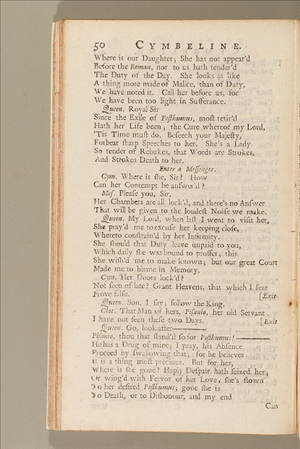 50 CYMBELINE.
Where is our Daughter; She has not appear'd
Before the Roman, nor to us hath tender'd
The Duty of the Day. She looks as like
A thing more made of Malice, than of Duty,
We have noted it. Call her before us, for
We have been too light in Sufferance.
Queen. Royal Sir
Since the Exile of Posthumus, most retir'd
Hath her Life been; the Cure whereof my Lord,
'Tis Time must do. Beseech your Majesty,
Forbear sharp Speeches to her. She's a Lady
So tender of Rebukes, that Words are Strokes,
And Strokes Death to her.
Enter a Messenger.
Cym. Where is she, Sir? How
Can her Contempt be answer'd?
Mes. Please you, Sir,
Her Chambers are all lock'd, and there's no Answer
That will be given to the loudest Noise we make.
Queen. My Lord, when last I went to visit her,
She pray'd me to excuse her keeping close,
Whereto constrain'd by her Infirmity,
She should that Duty leave unpaid to you,
Which daily she was bound to proffer; this
She wish'd me to make known; but our great Court
Made me to blame in Memory.
Cym. Her Doors lock'd?
Not seen of late? Grant Heavens, that which I fear
Prove false.
[Exit.
Queen. Son, I say; follow the King.
Clot. That Man of hers, Pisanio, her old Servant
I have not seen these two Days.
[Exit
Queen. Go, look after———
Pisanio, thou that stand'st so for Posthumus!———
He has a Drug of mine; I pray, his Absence
Proceed by swallowing that; for he believes
It is a thing most precious. But for her,
Where is she gone? Haply Despair hath seized her;
Or wing'd with Fervor of her Love, she's flown
To her desired Posthumus; gone she is
To Death, or to Dishonour, and my end
Can